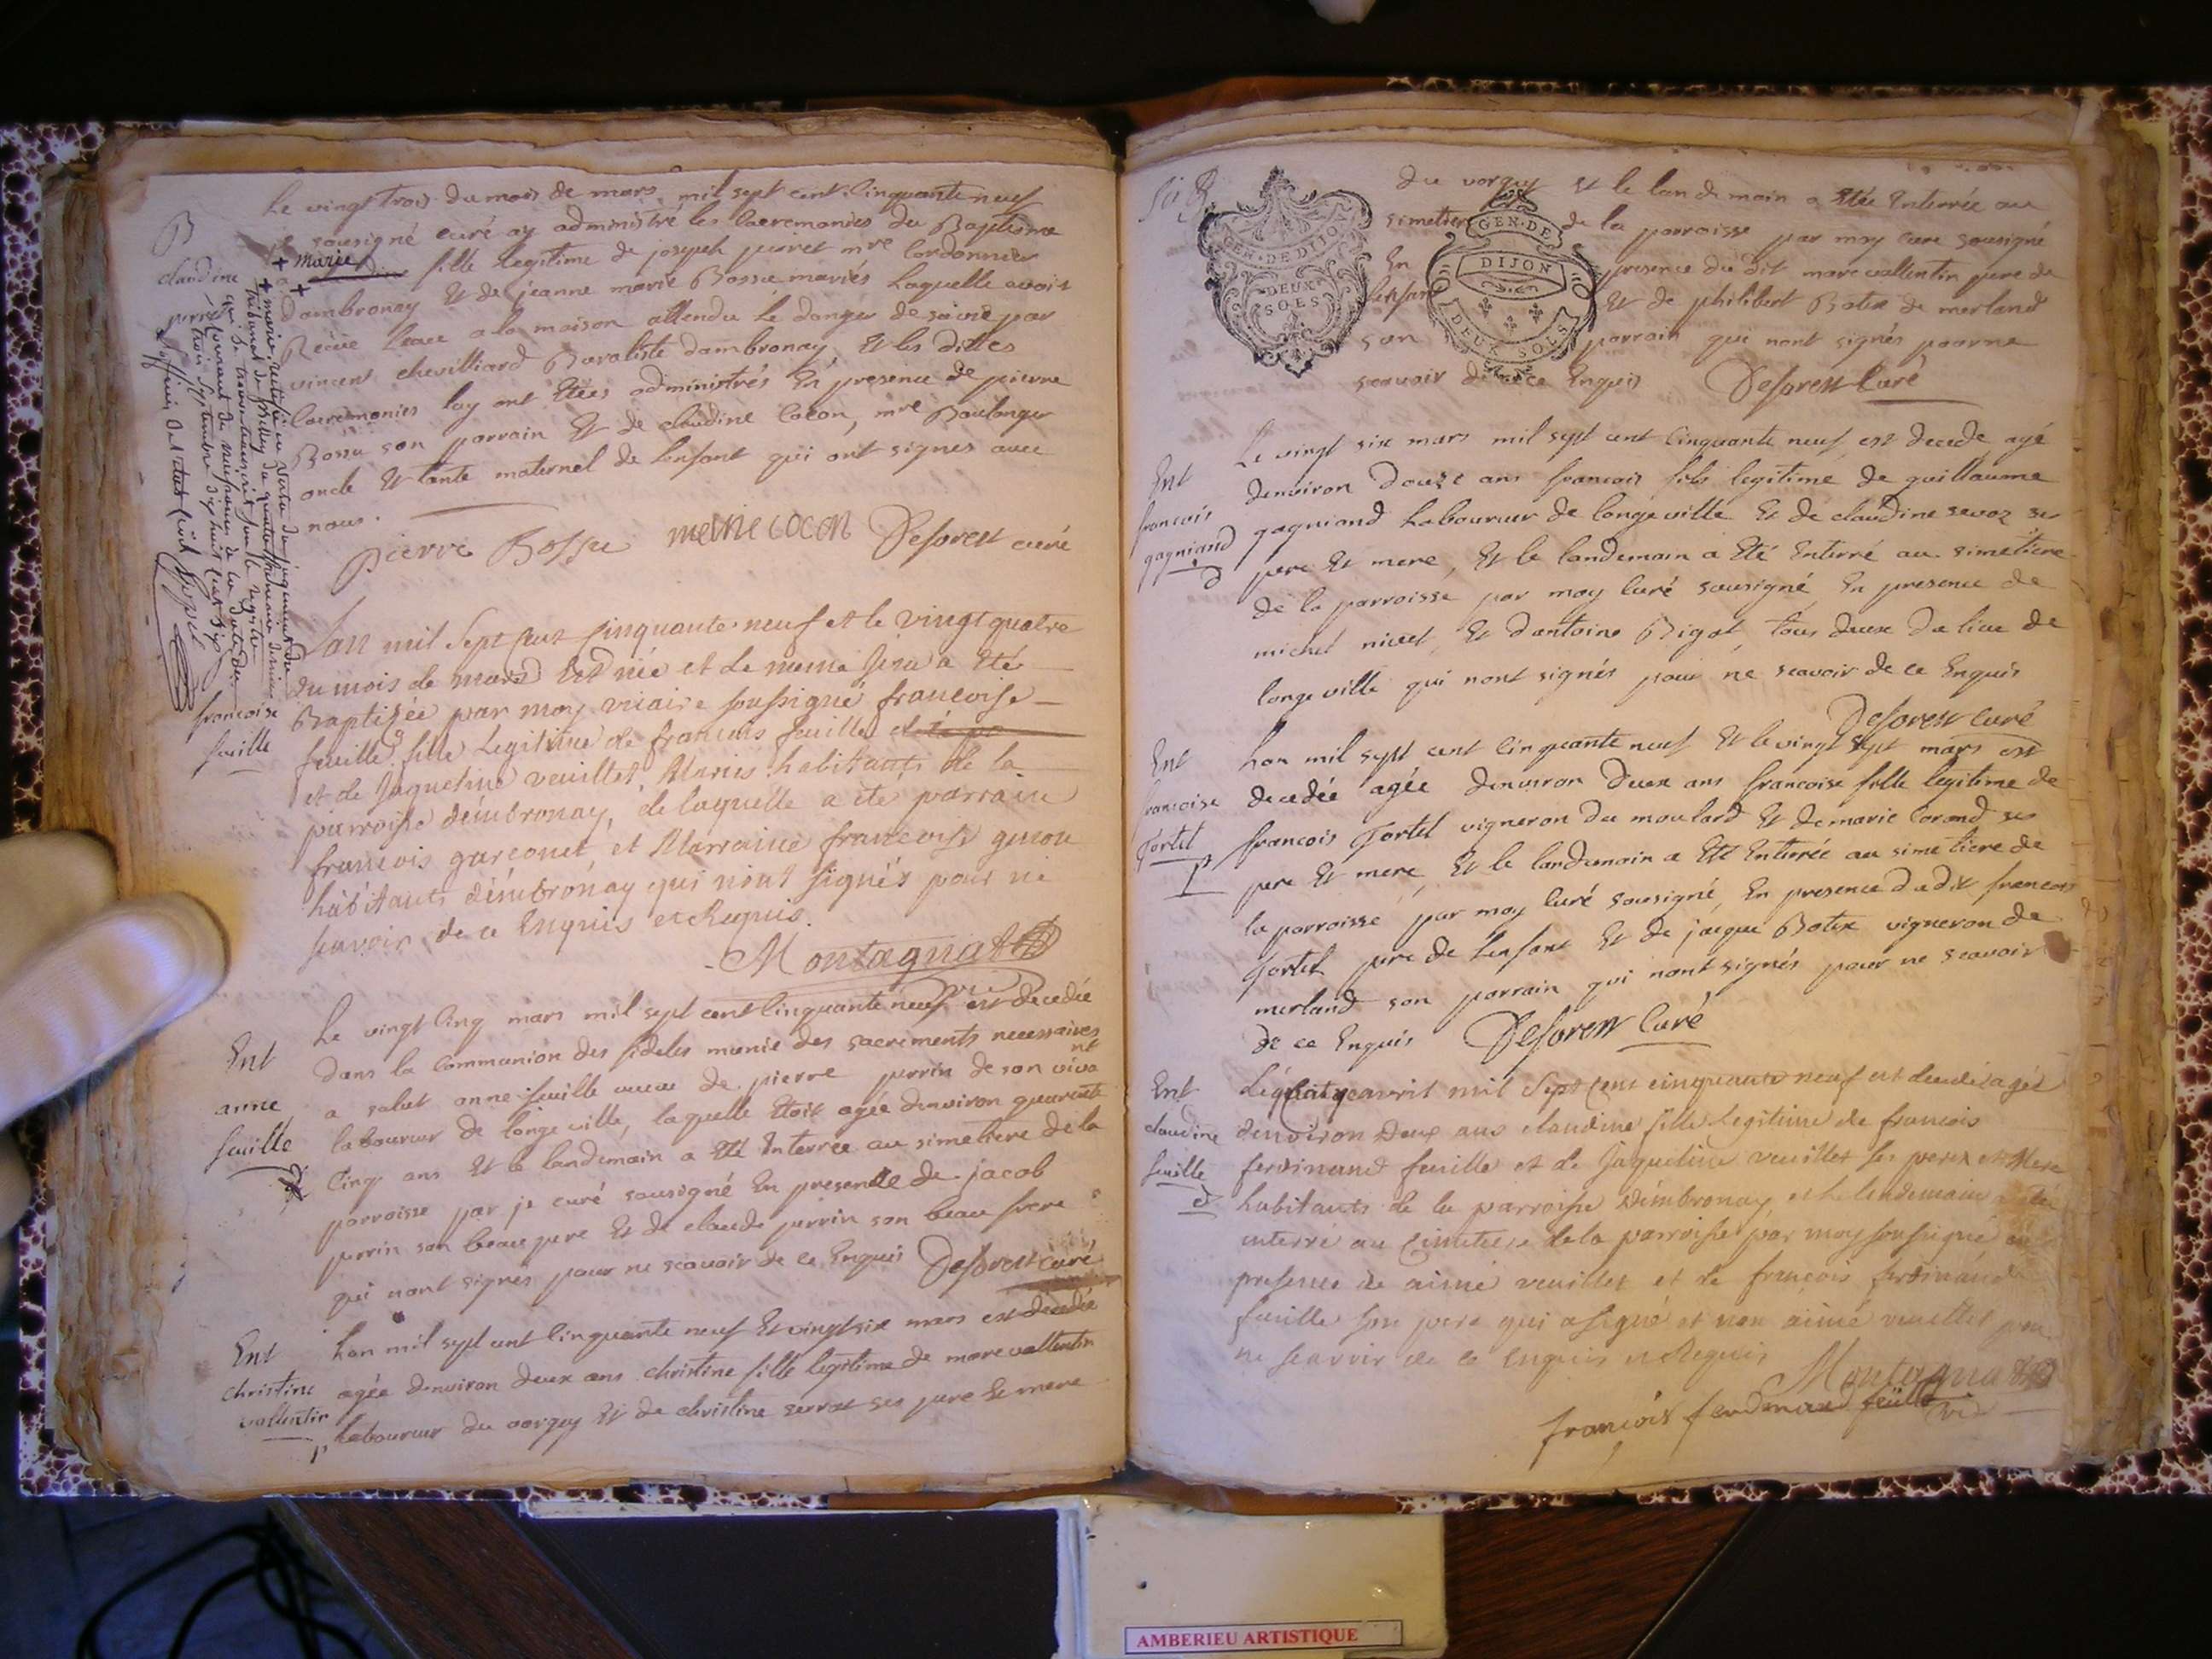 B
claudine
perret
Le vingt trois du mois de mars mil sept cent Cinquante neuf
je sousigné curé ay administré les Caeremonies du Baptisme
+ marie
a fille legitime de joseph perret mre Cordonnier
dambronay Et de jeanne marie Bossu mariés Laquelle avoit
Recüe leau a la maison attendu le danger de sa vie par
vincent chevilliard dambronay, Et les dittes
Caeremonies luy ont Etées administrés En presence de pierre
Bossu son parrain Et de claudine Cocon, mre Boulanger
oncle Et tante maternel de lenfant qui ont signes avec
nous.
pierre Bossu
COCON
Deforest curé
+ marie, rectifié en vertu du jugement du
tribunal de
du
de l'etat civil
francoise
feuille
Lan mil Sept Cent Cinquante neuf et le vingt quatre
du mois de mars Est née et de meme jour a Eté
Baptizée par moy vicaire soussigné francoise
feuille fille Legitime de francois feuille et
et de Jaqueline veuillet Mariés habitants de la
parroisse dembronay, de laquelle a ete parrain
francois garconet et Marraine francoise
habitants dembronay qui n'ont signés pour ne
scavoir de ce Enquis et Requis.
Montagnat
vic
Ent
anne
feuille
d
Le vingt Cinq mars mil sept cent Cinquante neuf est decedée
dans la Communion des fideles munie des sacrements necessaires
a salut anne feuille veuve de pierre perrin de son vivant
laboureur de longeville, laquelle Etoit agée denviron quarante
Cinq ans Et le landemain a Eté Enterrée au simetiere de la
parroisse par je curé sousigné En presence de jacob
perrin son beau pere Et de claude perrin son beau frere
qui nont signés pour ne scavoir de ce Enquis
Deforest curé
Ent
christine
vallentin
p
Lan mil sept cent Cinquante neuf Et vingt six mars est decedée
agée denviron deux ans christine fille legitime de marc vallentin
Laboureur du vorgey Et de christine serrat ses pere Et mere
GEN · DE DIJON
DEUX
SOLS
GEN · DE
DIJON
DEUX SOLS
du vorgey Et le landemain a Etée Enterrée au
simetiere de la parroisse par moy curé sousigné
En presence du dit marc vallentin pere de
lenfant Et de philibert Botex de merland
son parrain qui nont signés pour ne
scavoir de ce Enquis
Deforest Curé
Ent
francois
gagniand
d
Le vingt six mars mil sept cent Cinquante neuf est decede agé
denviron douze ans francois fils legitime de guillaume
gagniand Laboureur de longeville Et de claudine sevoz ses
pere Et mere, Et le landemain a Eté Enterré au simetiere
de la parroisse par moy Curé sousigné En presence de
michel nivet, Et dantoine Bigot, tous deux du lieu de
longeville qui nont signés pour ne scavoir de ce Enquis
Deforest Curé
Ent
francoise
Tortel
p
Lan mil sept cent Cinquante neuf Et le vingt sept mars est
decedée agée denviron deux ans francoise fille legitime de
francois Tortel vigneron du moulard Et de marie Corand ses
pere Et mere, Et le landemain a Eté Enterrée au simetiere de
la parroisse par moy Curé sousigné, En presence du dit francois
Tortel pere de lenfant Et de jacque Botex vigneron de
merland son parrain qui nont signés pour ne scavoir
de ce Enquis
Deforest Curé
Ent
claudine
feuille
d
avril mil Sept Cent cinquante neuf est decedée agée
denviron deux ans claudine fille Legitime de francois
ferdinand feuille et de Jaqueline veuillet ses peres et Mere
habitants de la parroisse dembronay et le lendemain a été
enterré au Cimetiere de la parroisse par moy soussigné en
presence de aimé veuillet et de françois ferdinand
feuille son pere qui a signé et non aimé veuillet pour
ne scavoir de ce Enquis et Requis
Montagnat
vic
françois ferdinand feüille
AMBERIEU ARTISTIQUE